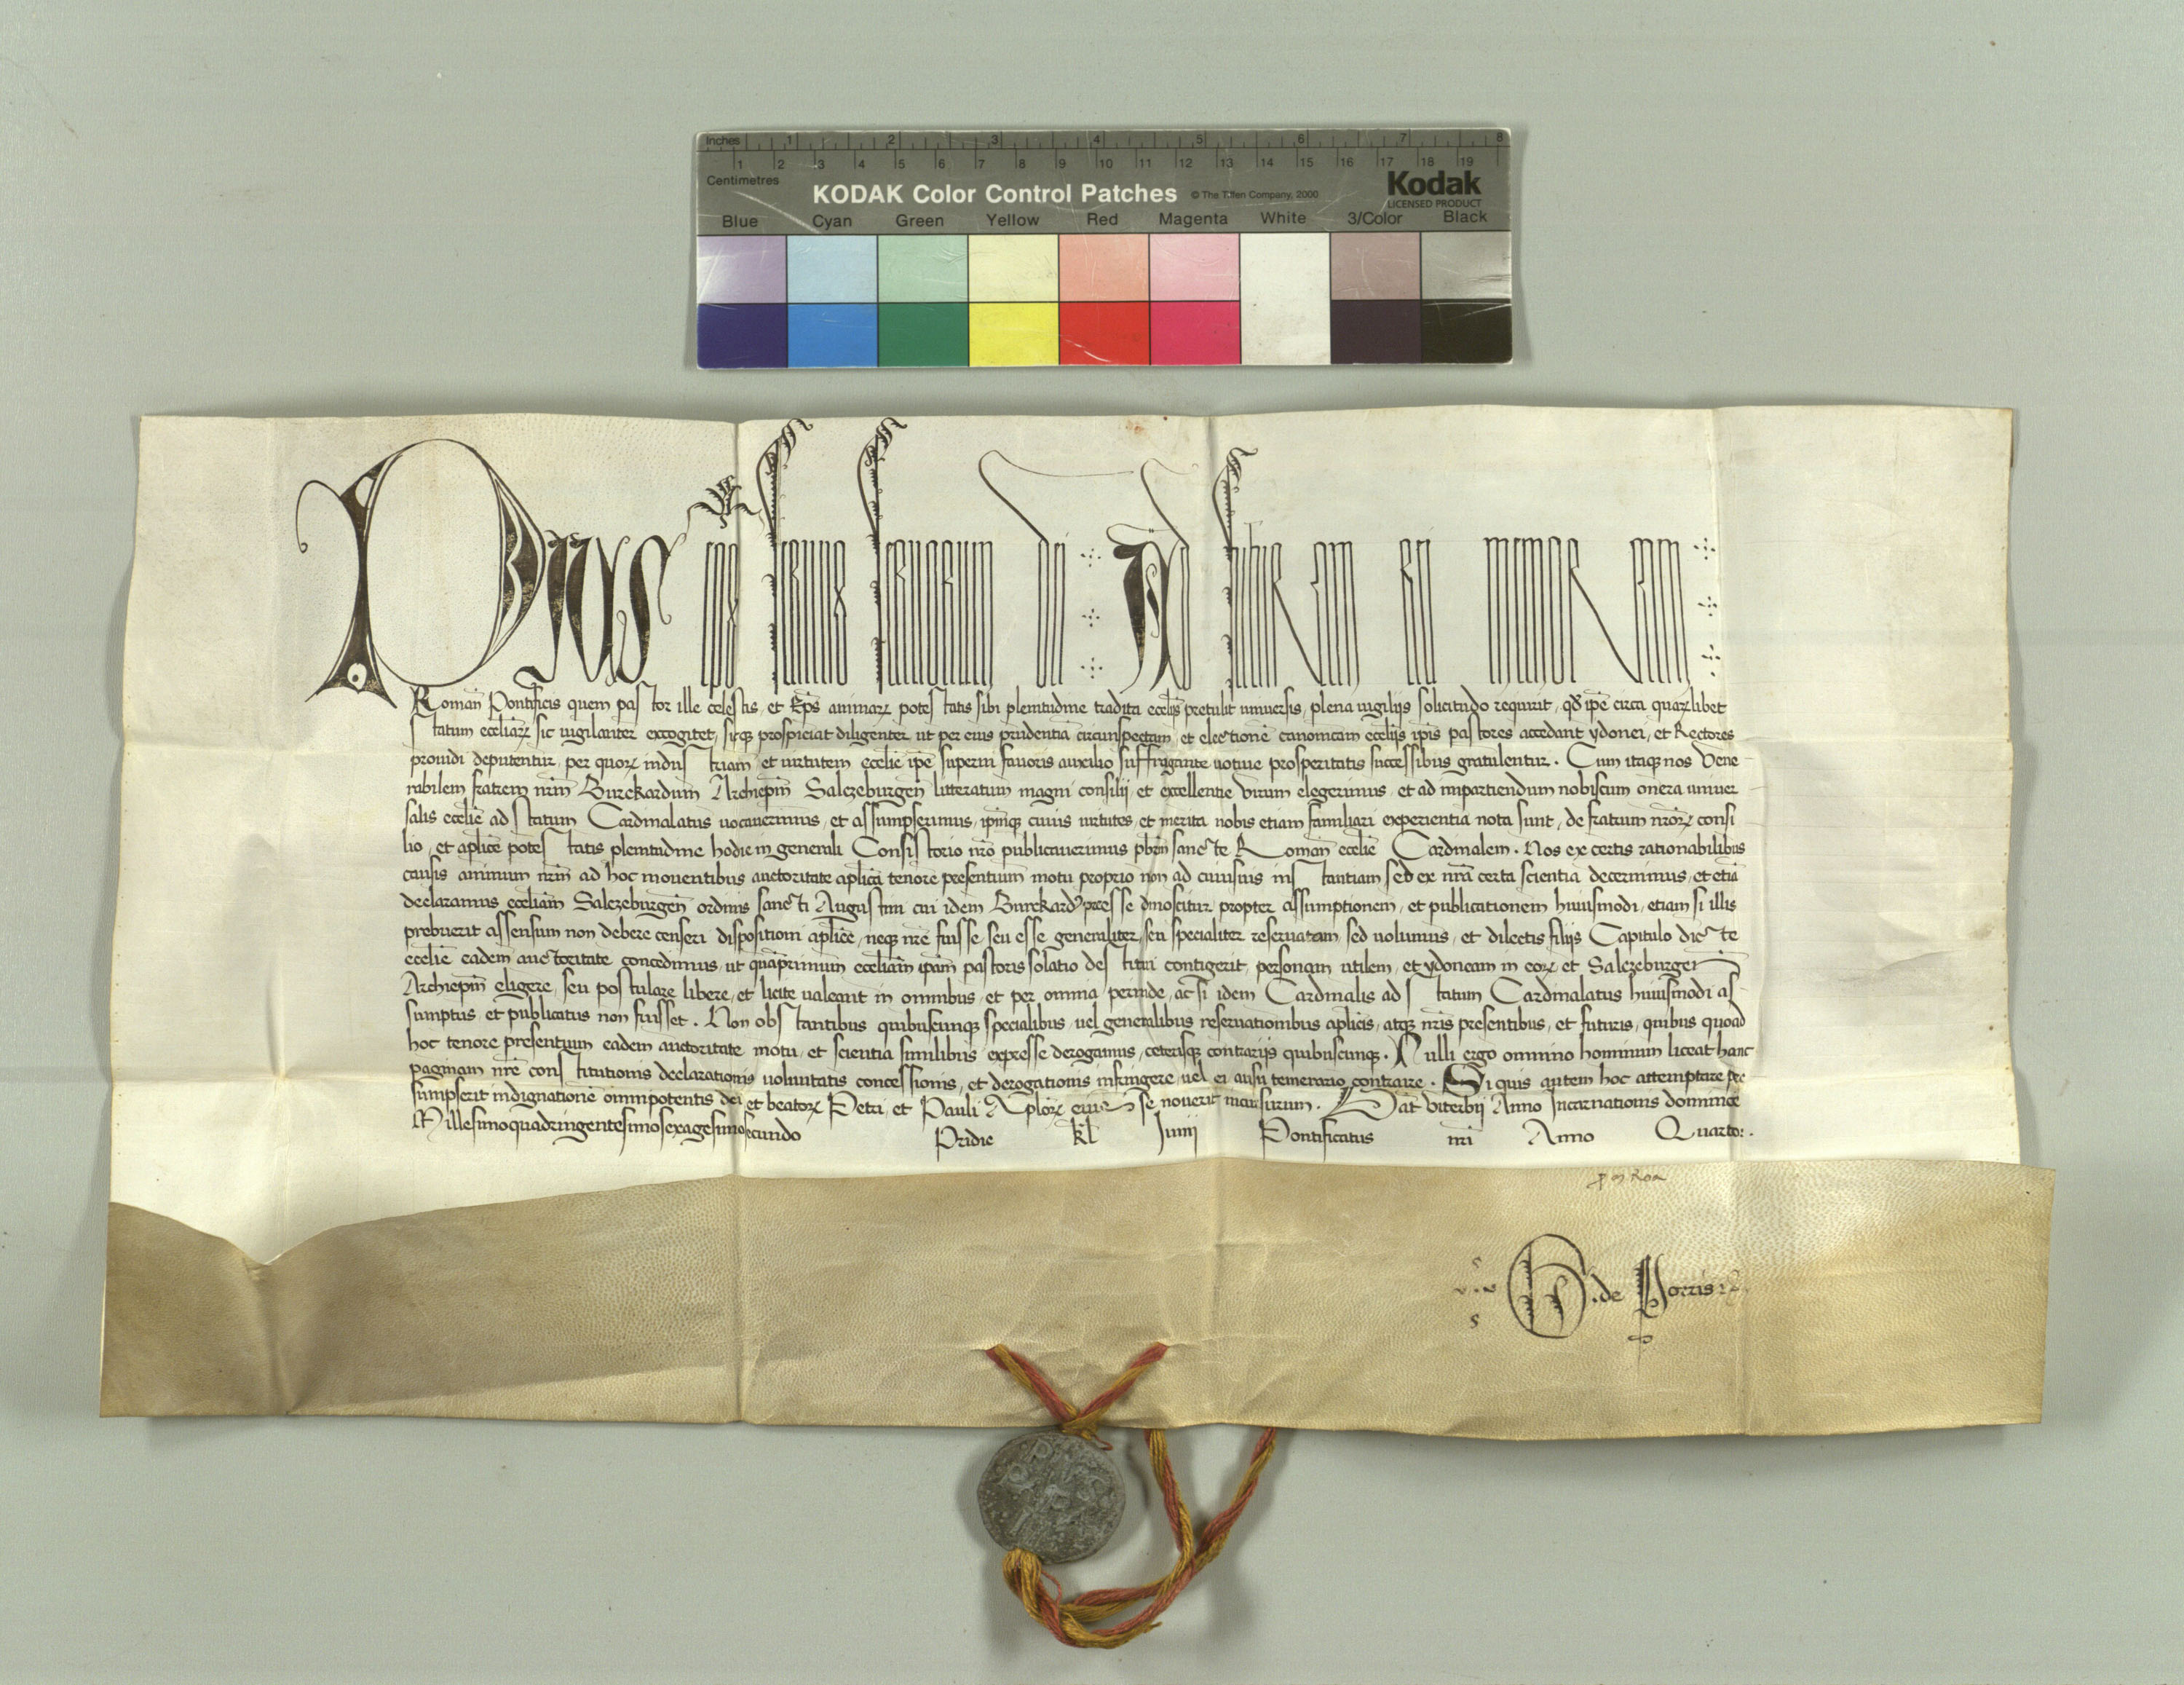 Inches 1 2 3 4 5 6 7 8
1 2 3 4 5 6 7 8 9 10 11 12 13 14 15 16 17 18 19
Centimetres
KODAK Color Control Patches © The Tiffen Company, 2000 Kodak
LICENSED PRODUCT
Blue Cyan Green Yellow Red Magenta White 3/Color Black
Pius ep̄s seruus seruorum dei Ad futuram rei memoriam
Roman̄ Pontificis quem pastor ille celestis, et Ep̄s animaꝝ potestatis sibi plenitudine tradita ecclīis pretulit uniuersis, plena uigilijs solicitudo requirit, qđ ip̄e circa quaꝝlibet
statum eccliaꝝ sic uigilanter excogitet, sicqꝫ prospiciat diligenter ut per eius prudentiā circumspectam, et electionē canonicam ecclīijs ip̄is pastores accedant ydonei, et Rectores
prouidi deputentur, per quoꝝ industriam et uirtutem ecclīe ip̄e superni fauoris auxilio suffragante uotiue prosperitatis successibus gratulentur. Cum itaqꝫ nos Vene
rabilem fratrem nr̄m Burckardum Archiep̄m Salczeburgen̄ litteratum magni consilij, et excellentie virum elegerimus, et ad impartiendum nobiscum onera uniuer
salis ecclīe ad statum Cardinalatus uocauerimus, et assumpserimus, ip̄mqꝫ cuius uirtutes, et merita nobis etiam familiari experientia nota sunt, de fratrum nr̄oꝝ consi
lio, et aplīce potestatis plenitudine hodie in generali Consistorio nr̄o publicauerimus pb̄rm sancte Roman̄ ecclīe Cardinalem. Nos ex certis rationabilibus
causis animum nr̄m ad hoc mouentibus auctoritate aplīca tenore presentium motu proprio non ad cuiusuis instantiam sed ex nr̄a certa scientia decernimus, et etiā
declaramus eccliam̄ Salczeburgen̄ ordinis sancti Augustini cui idem Burckardꝰ preesse dinoscitur propter assumptionem, et publicationem huiusmodi, etiam si illis
prebuerit assensum non debere censeri dispositioni aplīce, neqꝫ nr̄e fuisse, seu esse generaliter, seu specialiter reseruatam, sed uolumus, et dilectis filijs Capitulo dicte
ecclīe eadem auctoritate concedimus, ut quāprimum eccliam̄ ip̄am pastoris solatio destitui contigerit, personam utilem, et ydoneam in eoꝝ, et Salczeburgen̄
Archiep̄m eligere, seu postulare libere, et licite ualeant in omnibus, et per omnia perinde, ac si idem Cardinalis ad statum Cardinalatus huiusmodi as
sumptus, et publicatus non fuisset. Non obstantibus quibuscunqꝫ specialibus, uel generalibus reseruationibus aplīcis, atqꝫ nr̄is presentibus, et futuris, quibus quoad
hoc tenore presentium eadem auctoritate motu, et scientia similibus expresse derogamus, ceterisqꝫ contrarijs quibuscunqꝫ. Nulli ergo omnino hominum liceat hanc
paginam nr̄e constitutionis declarationis uoluntatis concessionis, et derogationis infringere, uel ei ausu temerario contraire. Si quis autem hoc attemptare pre
sumpserit indignationē omnipotentis dei, et beatoꝝ Petri, et Pauli Aploꝝ eius se nouerit incursurum. Dat̄ Viterbij Anno Incarnationis dominice
Millesimoquadringentesimosexagesimosecundo Pridie kl̄ Iunij Pontificatus nr̄i Anno Quarto.
de Porris